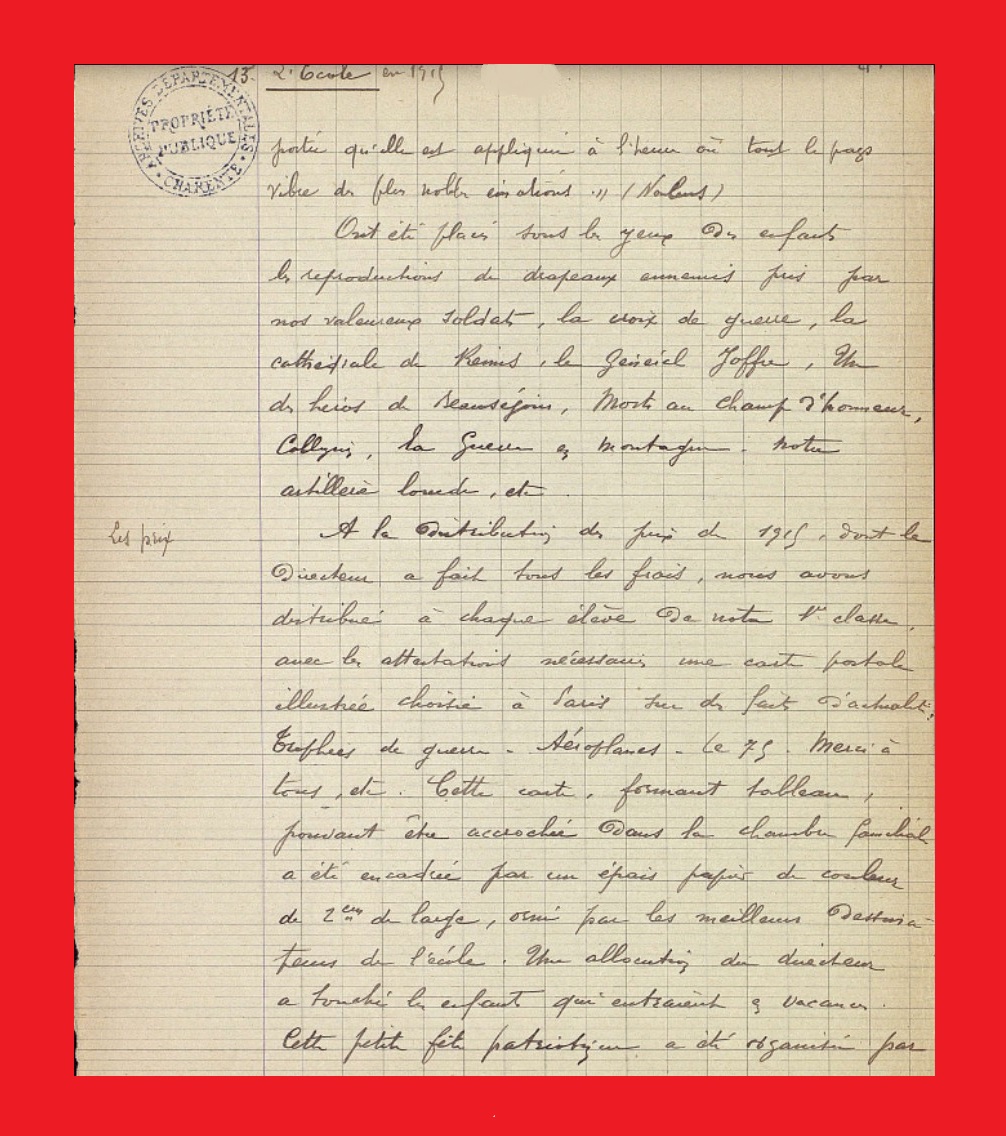 ARCHIVES DÉPARTEMENTALES
PROPRIÉTÉ
PUBLIQUE
CHARENTE
13. L'École en 1915
portée qu'elle est appliquée à l'heure où tout le pays
vibre des plus nobles émotions. » (
Ont été placés sous les yeux des enfants
les reproductions de drapeaux ennemis pris par
nos valeureux soldats, la croix de guerre, la
cathédrale de Reims, le Général Joffre, Un
des héros de Beauséjour, Morts au champ d'honneur,
la Guerre en montagne. Notre
artillerie lourde, etc.
Les prix
A la distribution des prix de 1915, dont le
Directeur a fait tous les frais, nous avons
distribué à chaque élève de notre 1re classe,
avec les attestations nécessaires une carte postale
illustrée choisie à Paris sur des faits d'actualité:
Trophées de guerre - Aéroplanes - Le 75. Merci à
tous, etc. Cette carte, formant tableau,
pouvant être accrochée dans la chambre familiale
a été encadrée par un épais papier de couleur
de 2cm de large, orné par les meilleurs dessina-
teurs de l'école. Une allocution du directeur
a touché les enfants qui entraient en vacances.
Cette petite fête patriotique a été organisée par